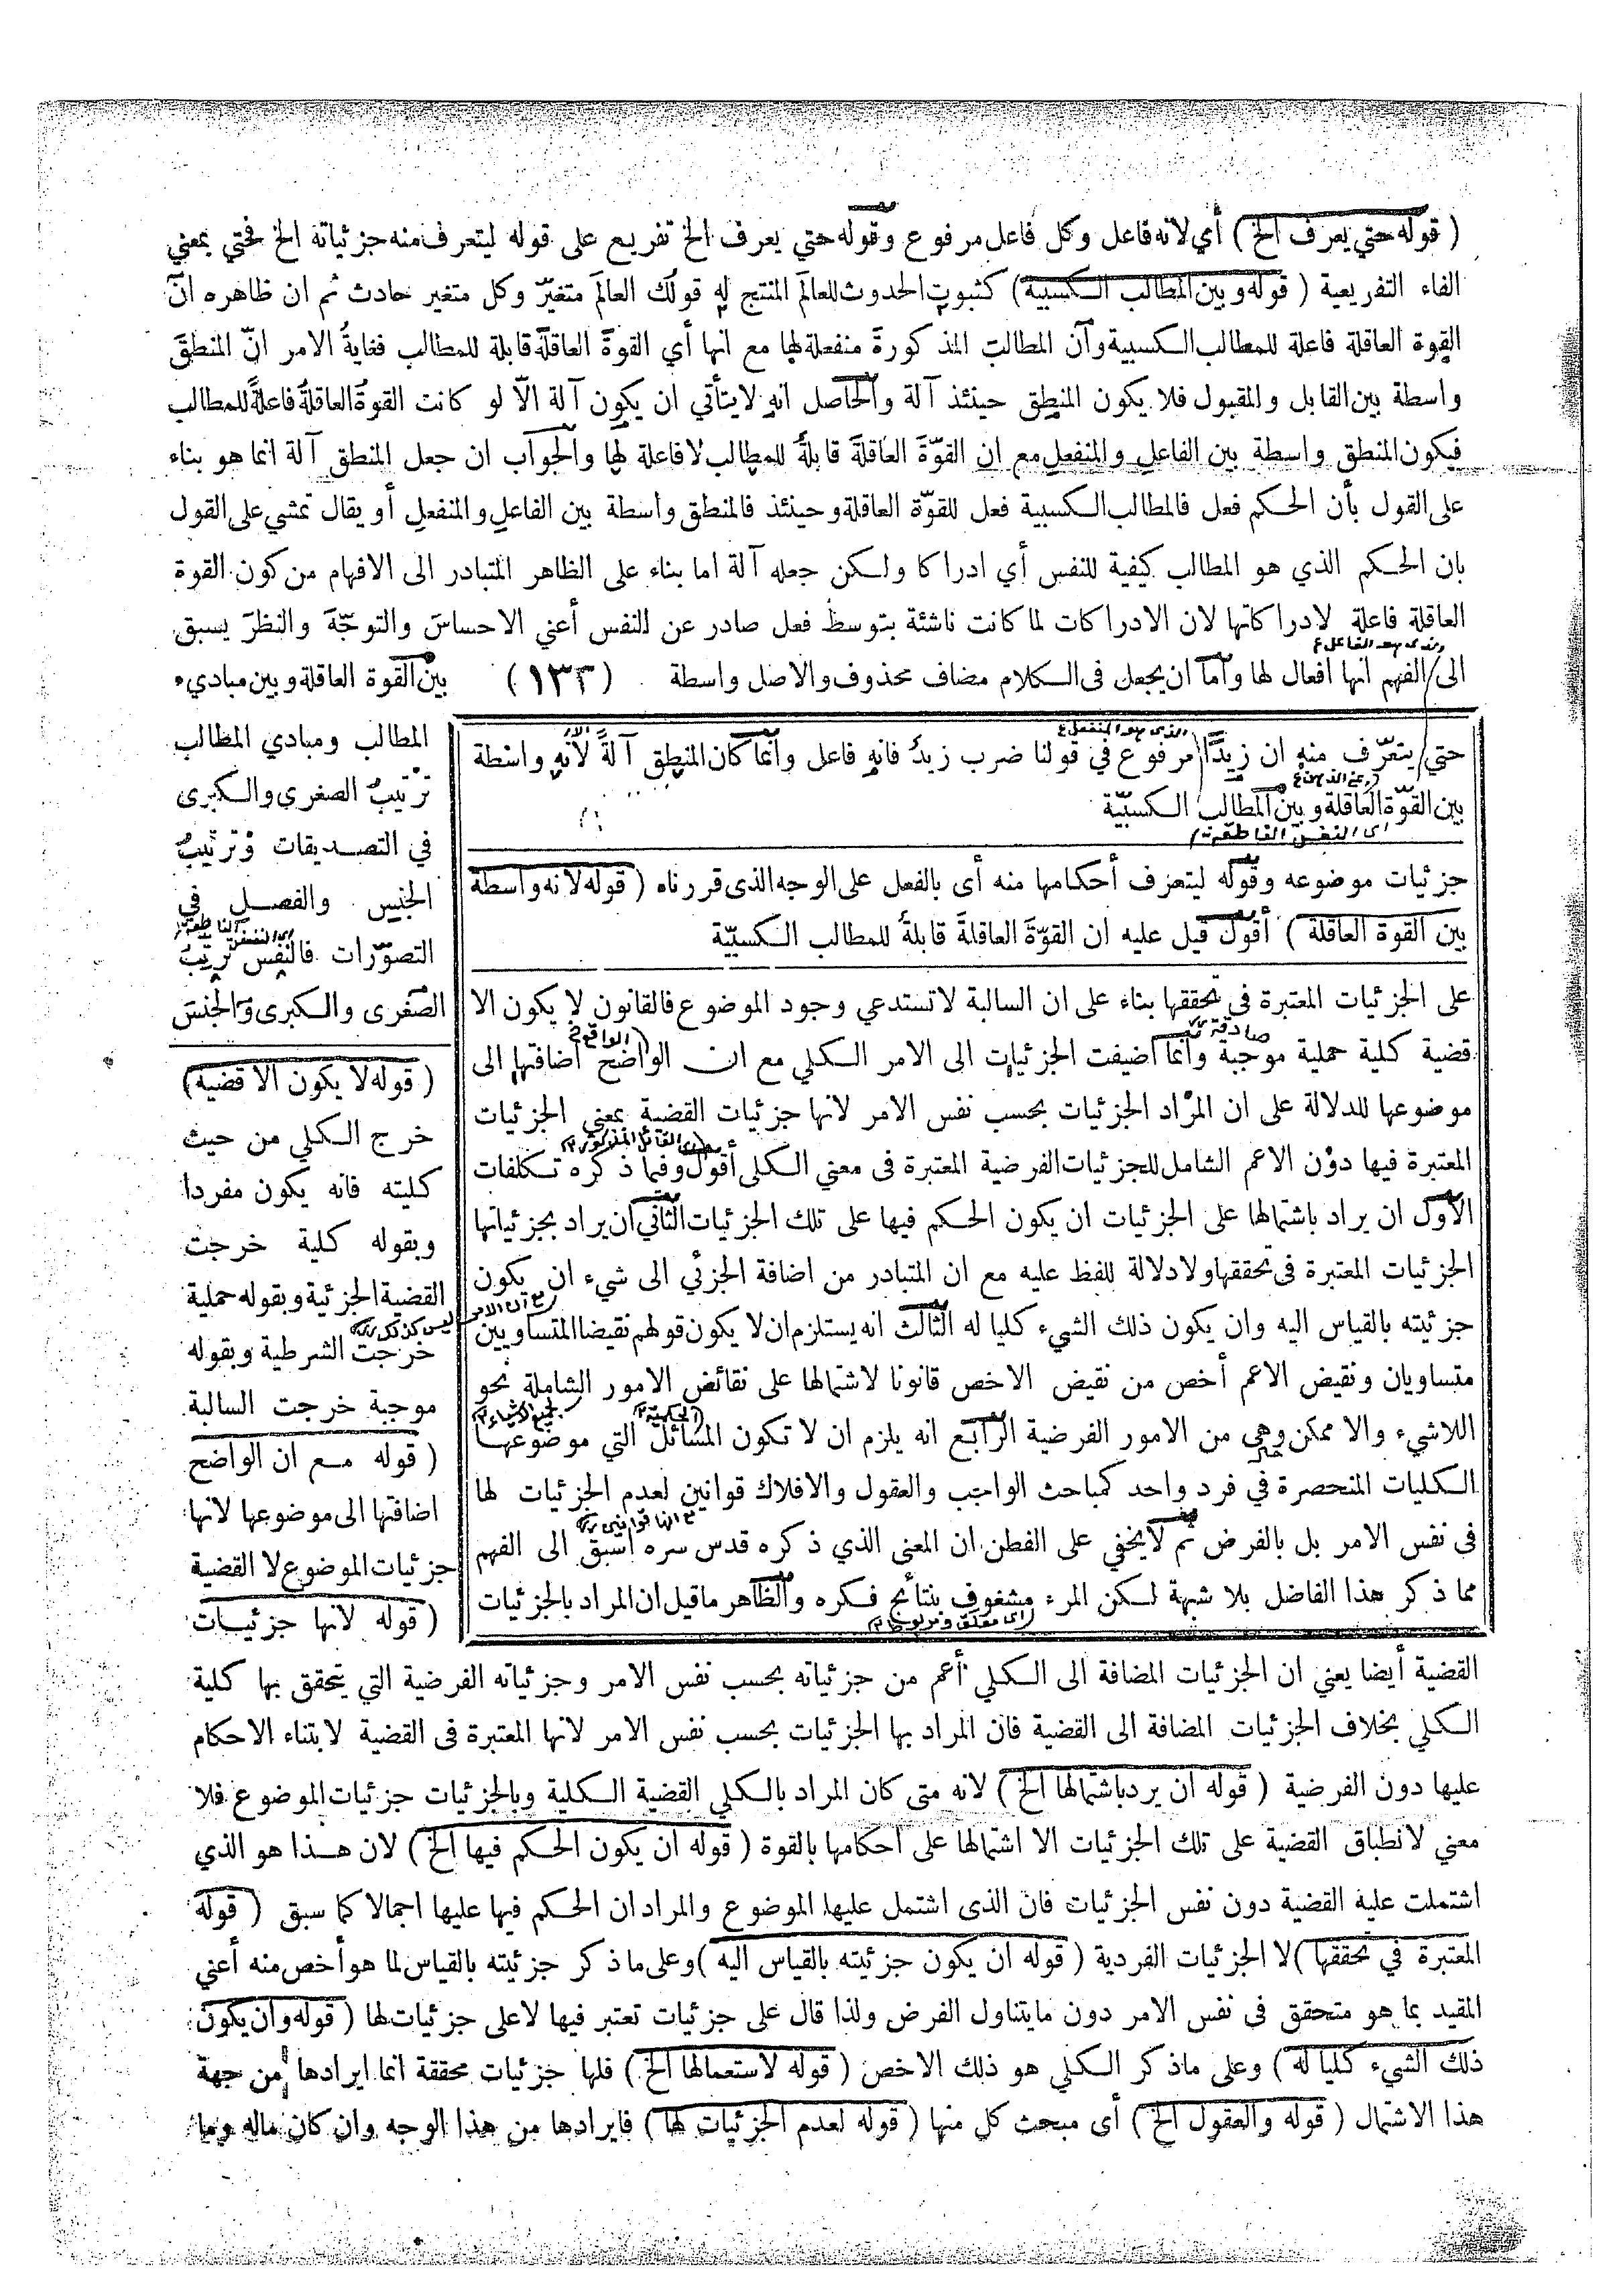 ( قوله حتي يعرف الخ ) أي لانه فاعل وكل فاعل مرفوع وقوله حتي يعرف الخ تفريع على قوله ليتعرف منه جزئياته الخ فحتي بمعني
الفاء التفريعية ( قوله وبين المطالب الكسبية ) كثبوت الحدوث للعالم المنتج له قولك العالَم متغيّر وكل متغير حادث ثم ان ظاهره انّ
القوة العاقلة فاعلة للمطالب الكسبية وأن المطالب المذكورة منفعلة لها مع انها أي القوةَ العاقلةَ قابلة للمطالب فغايةُ الامر انّ المنطقَ
واسطة بين القابل والمقبول فلا يكون المنطق حينئذ آلة والحاصل انه لا يتأتي ان يكون آلة الاّ لو كانت القوةُ العاقلةُ فاعلةً للمطالب
فيكون المنطق واسطة بين الفاعل والمنفعل مع ان القوّةَ العاقلةَ قابلةٌ للمطالب لا فاعلة لها والجواب ان جعل المنطق آلة انما هو بناء
على القول بأن الحكم فعل فالمطالب الكسبية فعل للقوّة العاقلة وحينئذ فالمنطق واسطة بين الفاعلِ والمنفعلِ أو يقال تمشي على القول
بان الحكم الذي هو المطالب كيفية للنفس أي ادراكا ولكن جعله آلة اما بناء على الظاهر المتبادر الى الافهام من كون القوة
العاقلة فاعلة لادراكاتها لان الادراكات لما كانت ناشئة بتوسط فعل صادر عن النفس أعني الاحساسَ والتوجّهَ والنظرَ يسبق
الى الفهم انها افعال لها وأما ان يجعل فى الكلام مضاف محذوف والاصل واسطة ( ١٣٣ ) بين القوة العاقلة وبين مباديء
المطالب ومبادي المطالب
ترتيبُ الصغرى والكبرى
في التصديقات وترتيبُ
الجنس والفصل في
التصوّرات فالنفس ترتب
الصغرى والكبرى والجنسَ
حتي يتعرّف منه ان زيدًا مرفوع في قولنا ضرب زيدٌ فانه فاعل وانما كان المنطق آلةً لأنه واسطة
بين القوّة العاقلة وبين المطالب الكسبيّة
جزئيات موضوعه وقوله ليتعرف أحكامها منه أى بالفعل على الوجه الذى قررناه ( قوله لانه واسطة
بين القوة العاقلة ) أقول قيل عليه ان القوّةَ العاقلةَ قابلةٌ للمطالب الكسبيّة
على الجزئيات المعتبرة فى تحققها بناء على ان السالبة لا تستدعي وجود الموضوع فالقانون لا يكون الا
قضية كلية حملية موجبة وانما أضيفت الجزئيات الى الامر الكلي مع ان الواضح اضافتها الى
موضوعها للدلالة على ان المراد الجزئيات بحسب نفس الامر لانها جزئيات القضية بمعني الجزئيات
المعتبرة فيها دون الاعم الشامل للجزئيات الفرضية المعتبرة فى معني الكلى أقول وفيما ذكره تكلفات
الأول ان يراد باشتمالها على الجزئيات ان يكون الحكم فيها على تلك الجزئيات الثاني ان يراد بجزئياتها
الجزئيات المعتبرة فى تحققها ولا دلالة للفظ عليه مع ان المتبادر من اضافة الجزئي الى شيء ان يكون
جزئيته بالقياس اليه وان يكون ذلك الشيء كليا له الثالث انه يستلزم ان لا يكون قولهم نقيضا المتساويين
متساويان ونقيض الاعم أخص من نقيض الاخص قانونا لاشتمالها على نقائض الامور الشاملة نحو
اللاشيء واللا ممكن وهي من الامور الفرضية الرابع انه يلزم ان لا تكون المسائل التي موضوعها
الكليات المنحصرة في فرد واحد كمباحث الواجب والعقول والافلاك قوانين لعدم الجزئيات لها
فى نفس الامر بل بالفرض ثم لا يخفي على الفطن ان المعنى الذي ذكره قدس سره أسبق الى الفهم
مما ذكر هذا الفاضل بلا شبهة لكن المرء مشغوف بنتائج فكره والظاهر ما قيل ان المراد بالجزئيات
( قوله لا يكون الا قضية )
خرج الكلي من حيث
كليته فانه يكون مفردا
وبقوله كلية خرجت
القضية الجزئية وبقوله حملية
خرجت الشرطية وبقوله
موجبة خرجت السالبة
( قوله مع ان الواضح
اضافتها الى موضوعها لانها
جزئيات الموضوع لا القضية
( قوله لانها جزئيات
القضية أيضا يعني ان الجزئيات المضافة الى الكلي أعم من جزئياته بحسب نفس الامر وجزئياته الفرضية التي يتحقق بها كلية
الكلي بخلاف الجزئيات المضافة الى القضية فان المراد بها الجزئيات بحسب نفس الامر لانها المعتبرة فى القضية لابتناء الاحكام
عليها دون الفرضية ( قوله ان يرد باشتمالها الخ ) لانه متى كان المراد بالكلي القضية الكلية وبالجزئيات جزئيات الموضوع فلا
معني لانطباق القضية على تلك الجزئيات الا اشتمالها على أحكامها بالقوة ( قوله ان يكون الحكم فيها الخ ) لان هذا هو الذي
اشتملت عليه القضية دون نفس الجزئيات فان الذى اشتمل عليها الموضوع والمراد ان الحكم فيها عليها اجمالا كما سبق ( قوله
المعتبرة في تحققها ) لا الجزئيات الفردية ( قوله ان يكون جزئيته بالقياس اليه ) وعلى ما ذكر جزئيته بالقياس لما هو أخص منه أعني
المقيد بما هو متحقق فى نفس الامر دون ما يتناول الفرض ولذا قال على جزئيات تعتبر فيها لا على جزئيات لها ( قوله وان يكون
ذلك الشيء كليا له ) وعلى ما ذكر الكلي هو ذلك الاخص ( قوله لاستعمالها الخ ) فلها جزئيات محققة انما ايرادها من جهة
هذا الاشتمال ( قوله والعقول الخ ) أى مبحث كل منها ( قوله لعدم الجزئيات لها ) فايرادها من هذا الوجه وان كان ماله وما